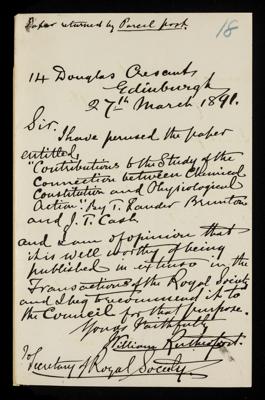 Paper returned by Parcel post.
18
14 Douglas Crescent,
Edinburgh
27th March 1891.
Sir,
I have perused the paper
entitled,
"Contributions to the Study of the
Connection between Chemical
Constitution and Physiological
Action" By T. Lauder Brunton
and J. T. Cash
and I am of opinion that
it is well worthy of being
published in extenso in the
Transactions of the Royal Society
and I beg to recommend it to
the Council for that purpose.
Yours faithfully
William Rutherford.
To
Secretary of Royal Society